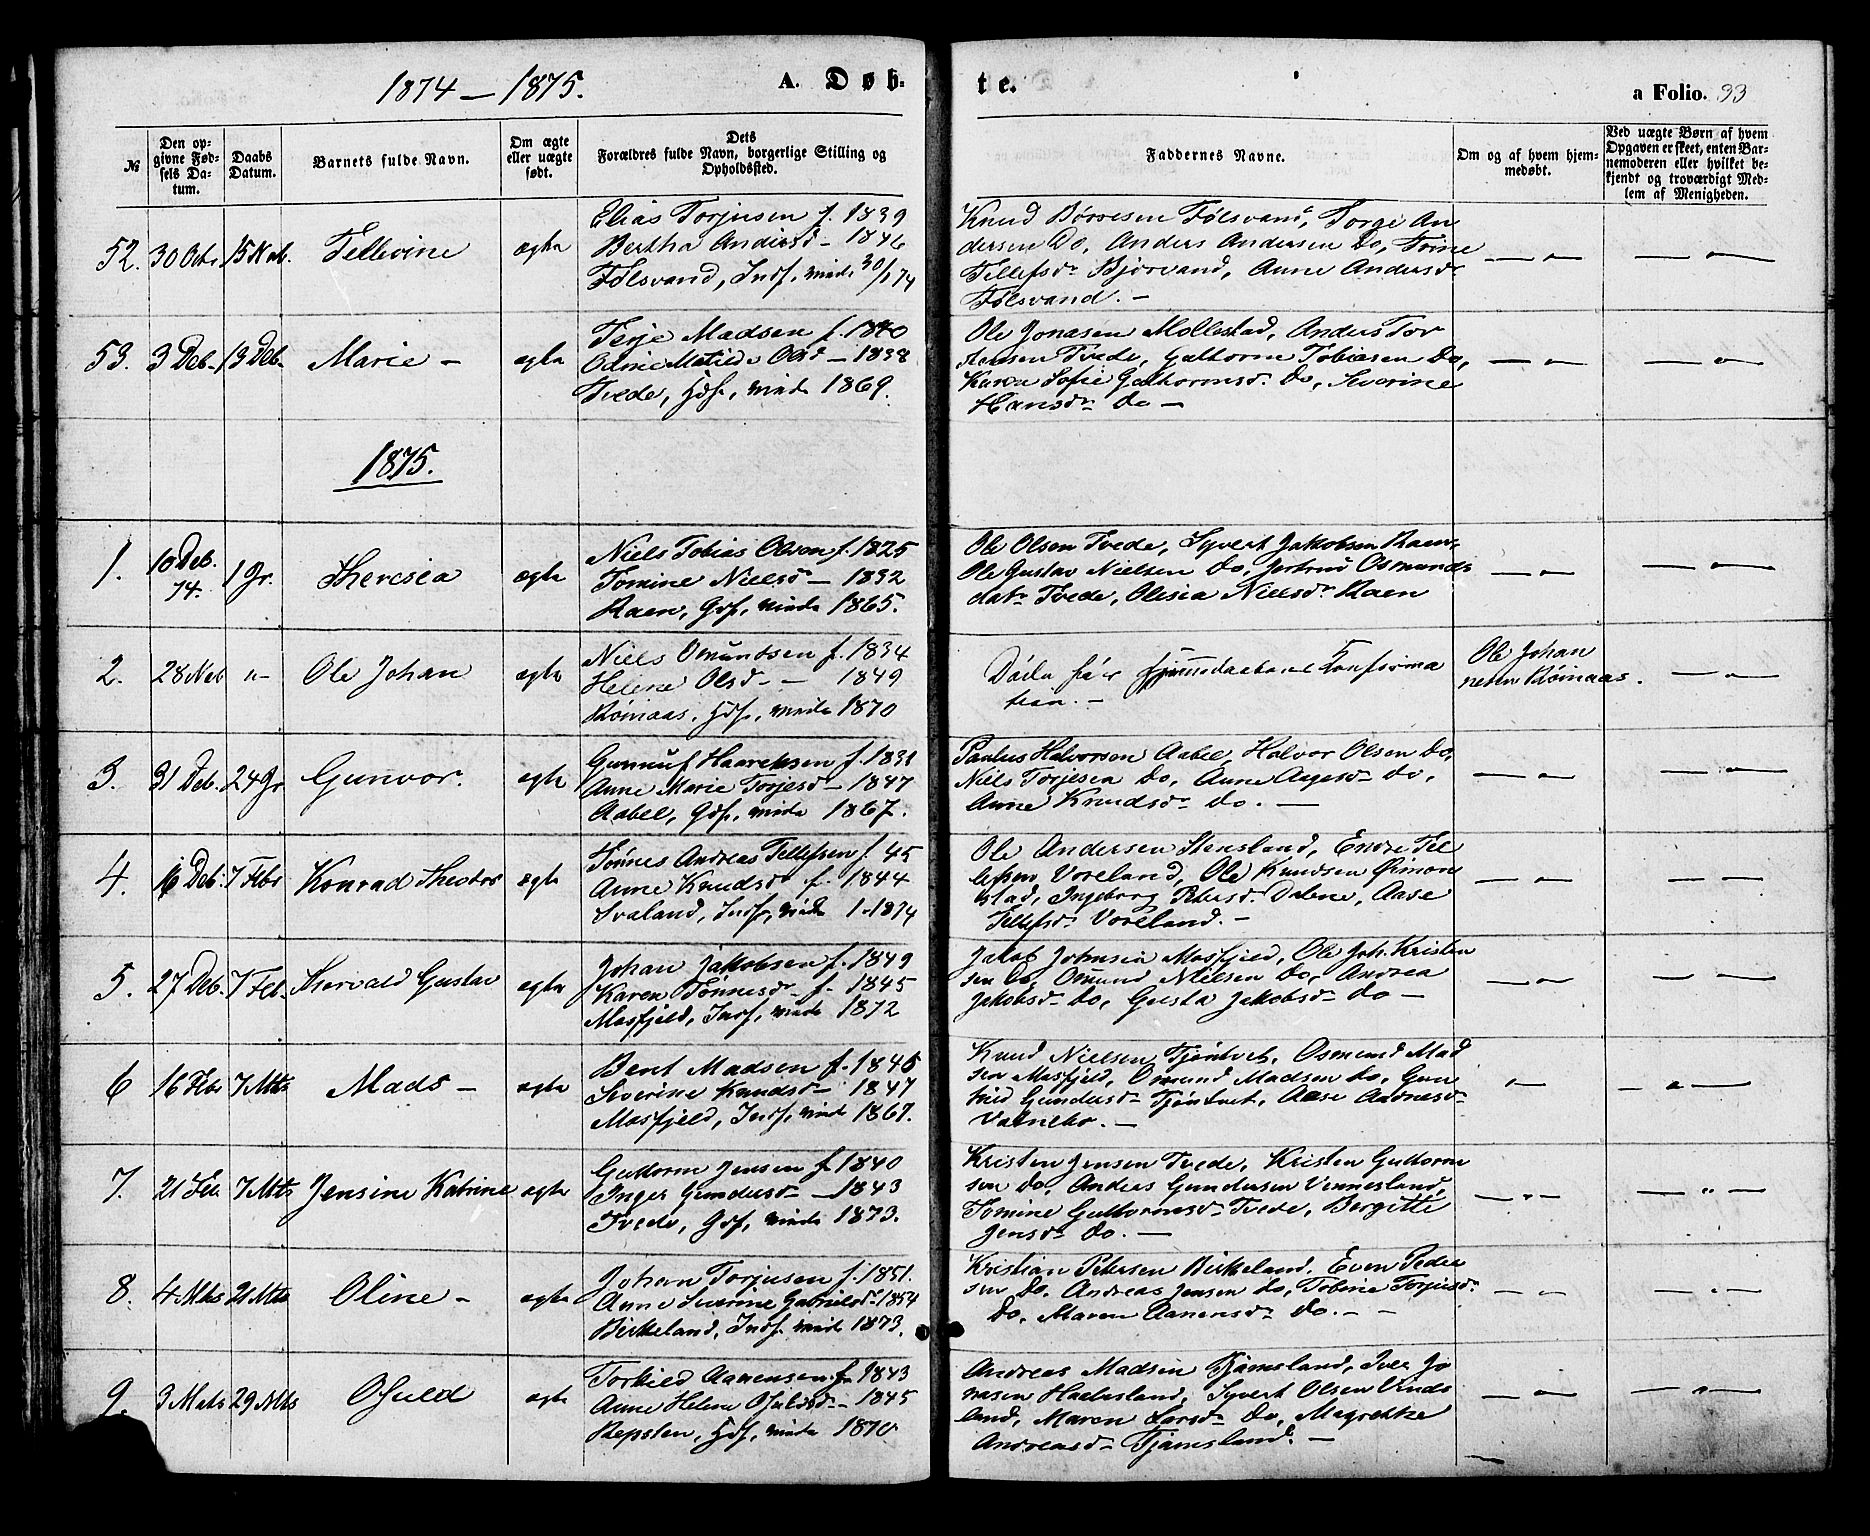 1874 — 1875.
A. Døb-
te.
a Folio. 33
№
Den opgivne Fødsels Datum.
Daabs Datum.
Barnets fulde Navn.
Om ægte eller uægte født.
Dets Forældres fulde Navn, borgerlige Stilling og Opholdssted.
Faddernes Navne.
Om og af hvem hjemmedøbt.
Ved uægte Børn af hvem Opgaven er skeet, enten Barnemoderen eller hvilket bekjendt og troværdigt Medlem af Menigheden.
52. 30 Oct. 15 Nob. Tellevine ægta
Elias Torjusen f. 1839
Bertha Andersd – 1846
Følsvand, Indf, 30/1 74
Knud Børresen Følsvand, Torge An
dersen Do, Anders Andersen Do, Trine
Tellefsdr Bjorvand, Anne Andersdr
Følsvand. –
53. 3 Deb. 13 Deb. Marie – ægta
Terje Madsen f. 1840
Matilde Olsd – 1838
Tvede, Gdf, 1869.
Ole Jonasen Mollestad, Anders Tor
Tvede, Guttorm Tobiasen Do,
Karen Sofie Guttormsdr Do, Severine
Hansdr Do –
1875.
1. 10 Deb. 74. 1 Jr. Theresia ægta
Niels Tobias Olsen f. 1825
Tomine Nielsd – 1832
Raen, Gdf, 1865.
Ole Olsen Tvede, Syvert Jakobsen Raen,
Ole Gustav Nielsen Do, Osmunds
datr Tvede, Olisia Nielsdr Raen
2. 28 Nob „– Ole Johan ægta
Niels Omundsen f. 1834
Helene Olsd – – 1849
Røinaas, Gdf, 1870
Døde før Konfirma
tion. –
Ole Johan
nesen Røinaas.
3. 31 Deb. 24 Jr Gunvor. ægta
Gunnuf Haavensen f. 1831
Anne Marie Torjesd – 1847
Aabel, Gdf, 1867.
Paulus Halvorsen Aabel, Halvor Olsen Do,
Niels Torjesen Do, Anne Aagesdr Do,
Anne Knudsdr Do. –
4. 16 Deb. 7 Febr Konrad Theodor ægta
Tønnes Andreas Tellefsen f. 45
Anne Knudsdr f. 1844
Svaland, Indf, 1874
Ole Andersen Stensland, Endre Tel
lefsen Voreland, Ole Knudsen Ømon
stad, Ingeborg Petersdr Dalene, Aase
Tellefsdr Voreland. –
5. 27 Deb. 7 Feb. Thorvald Gustav ægta
Johan Jakobsen f. 1849
Karen Tønnesdr f. 1845
Mosfjeld, Indf, 1872
Jakob Johnsen Mosfjeld, Ole Joh. Kristen
sen Do, Omund Nielsen Do, Andrea
Jakobsdr Do, Gusta Jakobsdr Do –
6 16 Febr 7 Mts Mads – ægta
Bent Madsen f. 1846
Severine Knudsd – 1847
Mosfjeld, Indf, 1867.
Knud Nielsen Tjøntvet, Osmund Mad
sen Mosfjeld, Omund Madsen Do, Gun
hild Gundersdr Tjøntvet, Aase Aadnesdr
Vatnebo. –
7. 21 Feb. 7 Mts Jensine Katrine ægta
Guttorm Jensen f. 1840
Inger Gundersdr – 1843
Tvede, Gdf, 1873.
Kristen Jensen Tvede, Kristen Guttorm
sen Do, Anders Gundersen Vennesland,
Tomine Guttormsdr Tvede, Bergitte
Jensdr Do. –
8. 4 Mts 21 Mts Oline – ægta
Johan Torjusen f. 1851.
Anne Severine Gabrielsdr 1854
Birkeland, Indf, 1873.
Kristian Petersen Birkeland, Even Peder
sen Do, Andreas Jensen Do, Tobine Torjusdr
Do, Maren Aanensdr Do. – –
9. 3 Mts 29 Mts Osuld ægta
Torkild Aanensen f. 1843
Anne Helene Osuldsdr – 1845
Repsten, Gdf, 1870
Andreas Madsen Tjomsland, Iver Jo
nasen Haabesland, Syvert Olsen Vinds
land, Maren Larsdr Do, Magrethe
Andreasdr Tjomsland. –